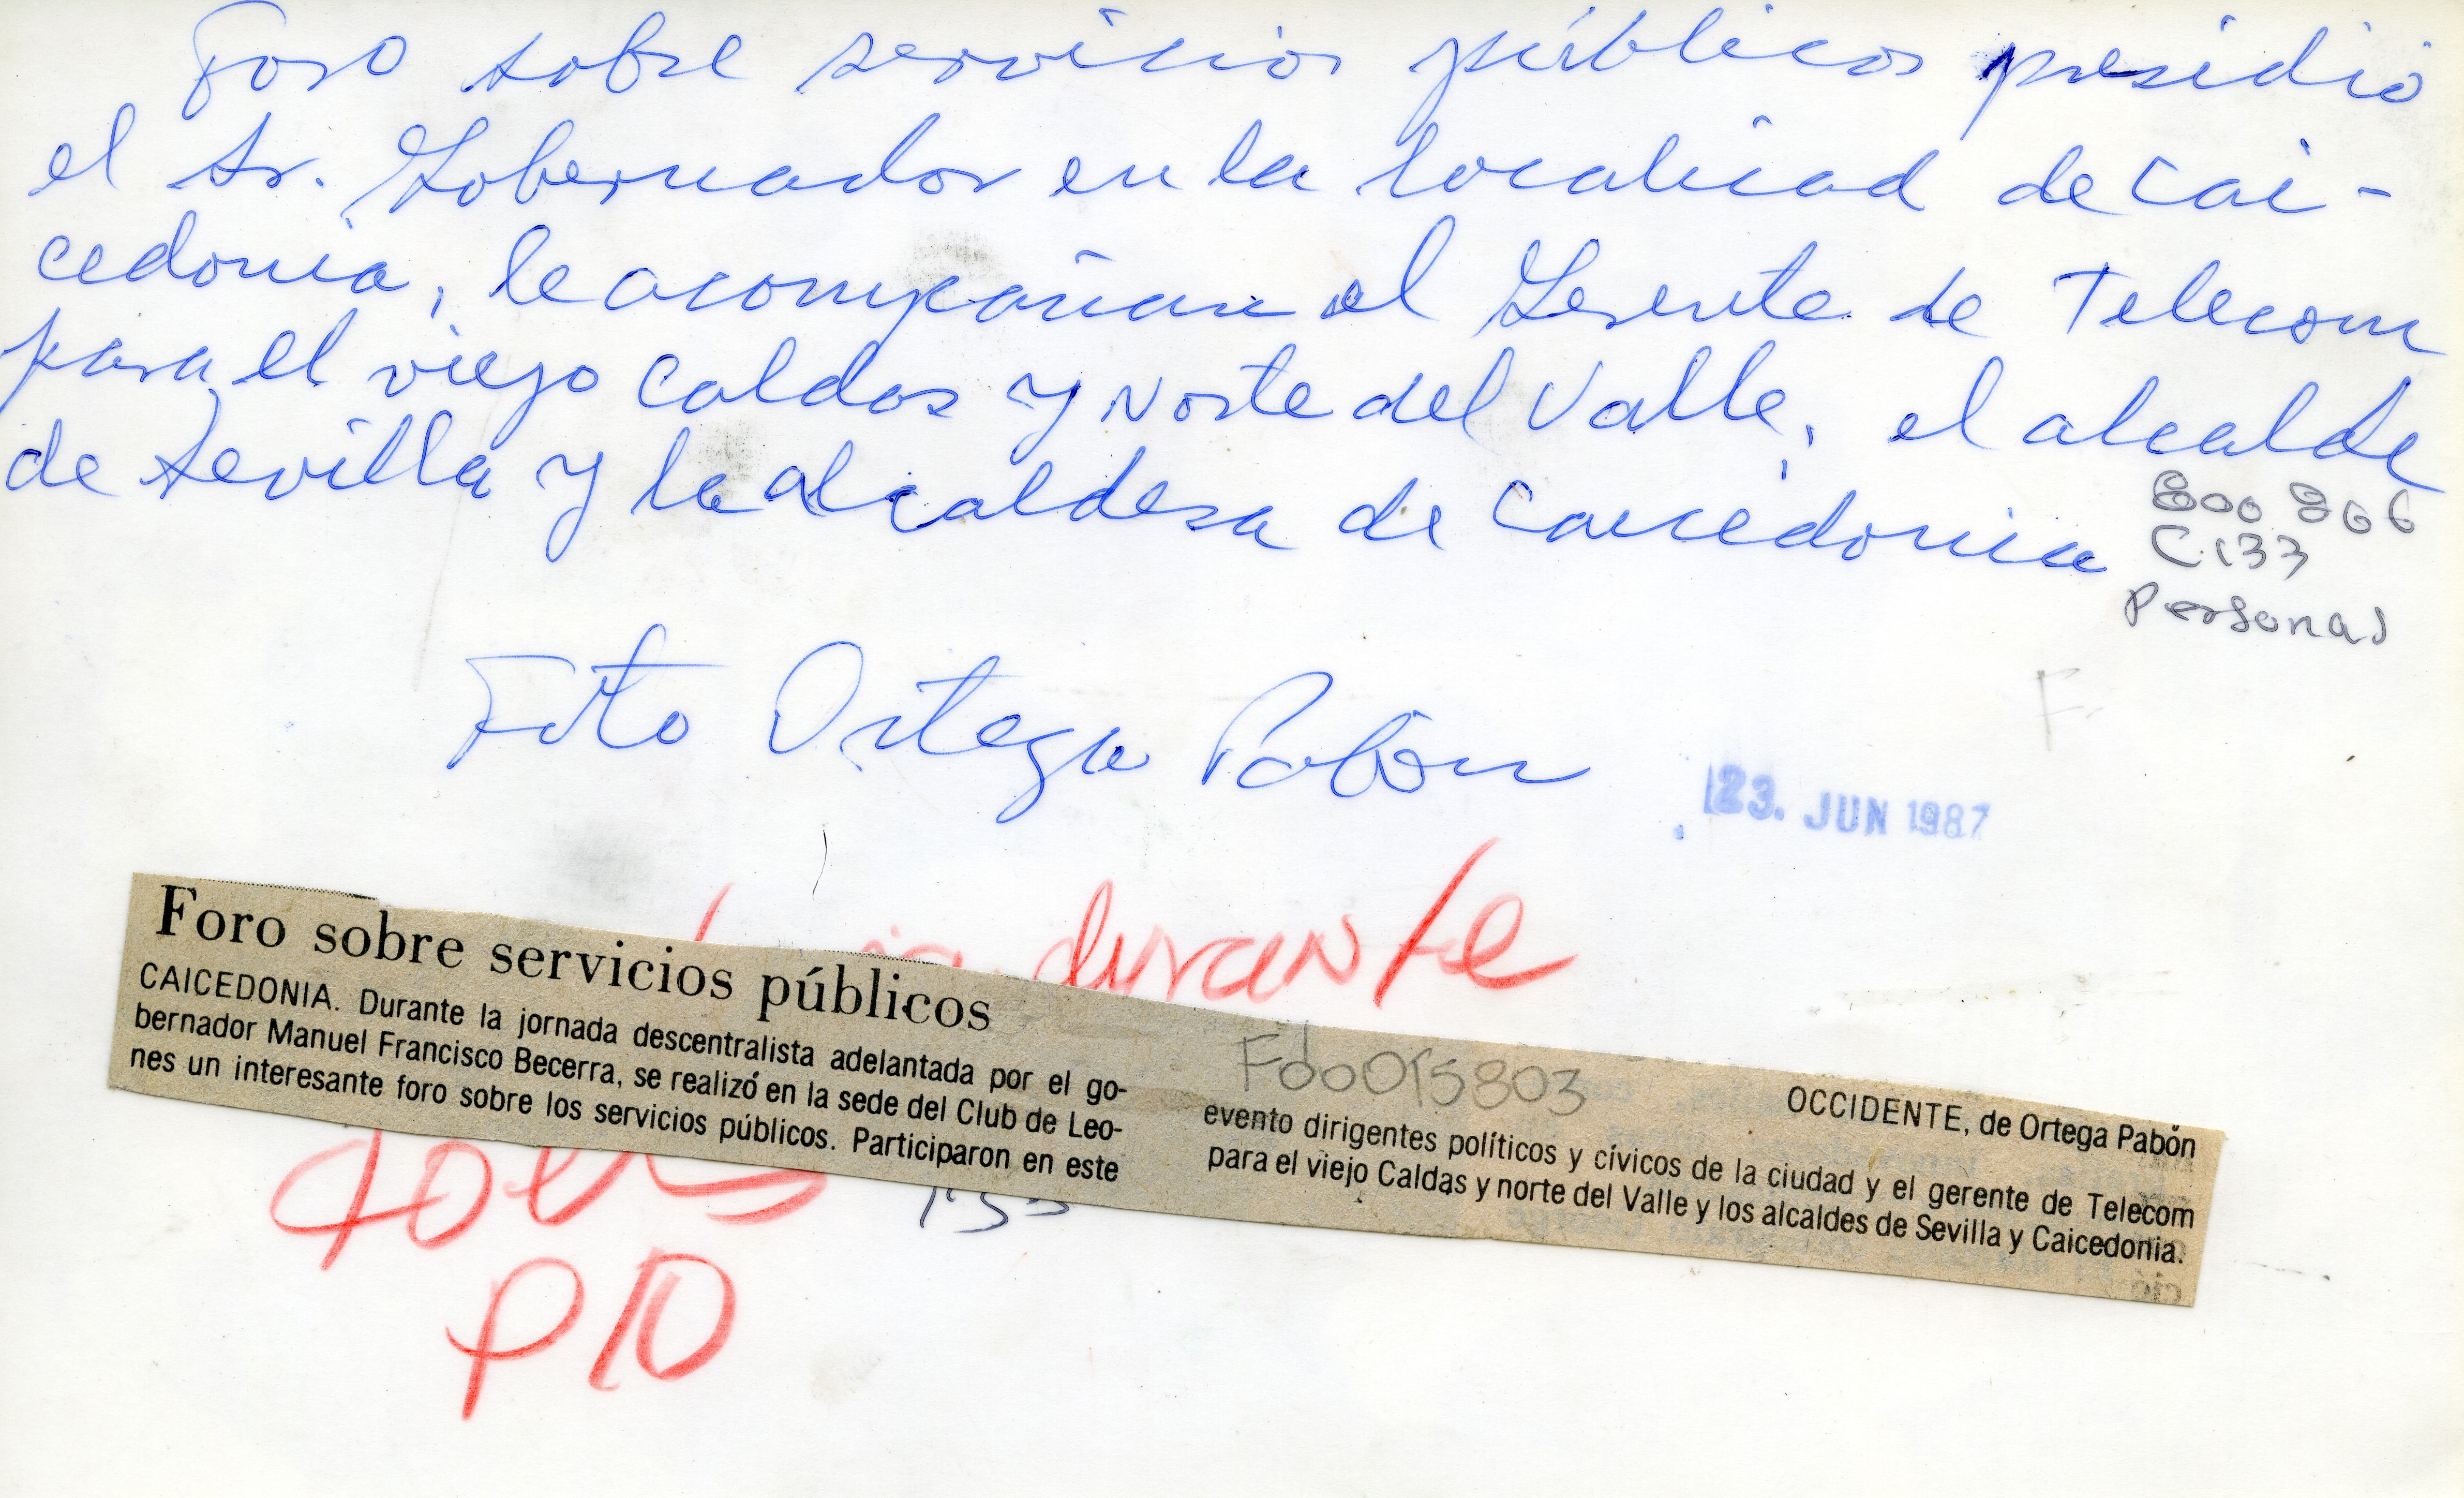 Foro sobre servicios públicos presidió
el Sr. Gobernador en la localidad de Cai-
cedonia, le acompañan el Gerente de Telecom
para el viejo Caldas y Norte del Valle, el alcalde
de Sevilla y la alcaldesa de Caicedonia
800 866
C.133
Personal
Foto Ortega Pabón
F.
23. JUN 1987
durante
Foro sobre servicios públicos
CAICEDONIA. Durante la jornada descentralista adelantada por el go-
bernador Manuel Francisco Becerra, se realizó en la sede del Club de Leo-
nes un interesante foro sobre los servicios públicos. Participaron en este
Fdo015803
OCCIDENTE, de Ortega Pabón
evento dirigentes políticos y cívicos de la ciudad y el gerente de Telecom
para el viejo Caldas y norte del Valle y los alcaldes de Sevilla y Caicedonia.
P10